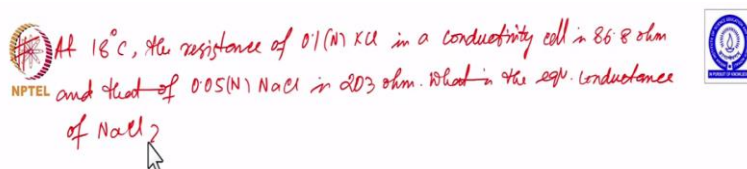 At 18°C, the resistance of 0.1(N) KCl in a conductivity cell is 86.8 ohm
NPTEL and that of 0.05(N) NaCl is 203 ohm. What is the eqv. conductance
of NaCl?